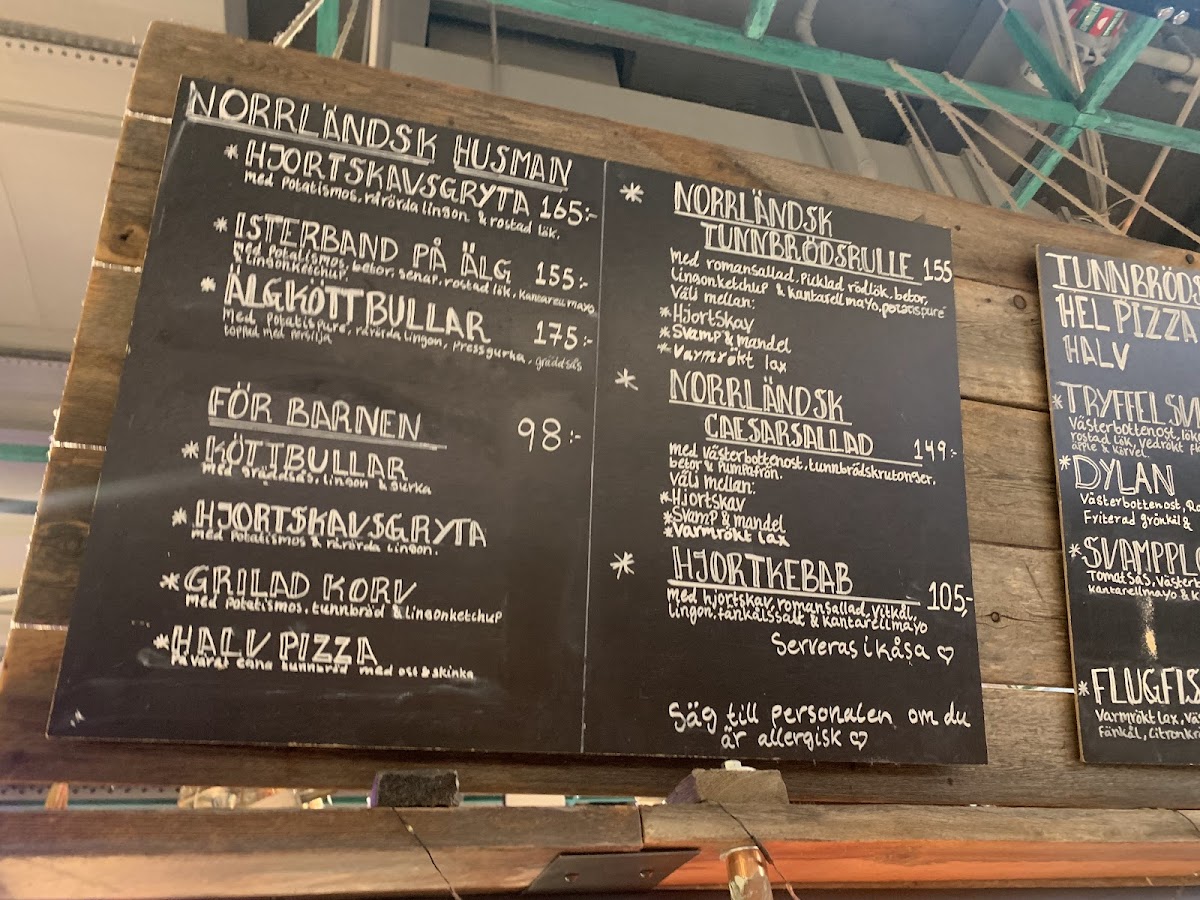 NORRLÄNDSK HUSMAN
* HJORTSKAVSGRYTA 165:-
med potatismos, rårörda lingon & rostad lök.
* ISTERBAND PÅ ÄLG 155:-
med potatismos, betor, senap, rostad lök, kantarellmayo
& lingonketchup.
* ÄLGKÖTTBULLAR 175:-
Med Potatispuré, rårörda lingon, Pressgurka, gräddsås
toppad med persilja
FÖR BARNEN 98:-
* KÖTTBULLAR
med gräddsås, lingon & gurka
* HJORTSKAVSGRYTA
med potatismos & rårörda lingon.
* GRILAD KORV
med potatismos, tunnbröd & lingonketchup
* HALV PIZZA
På vårat egna tunnbröd med ost & skinka
* NORRLÄNDSK
TUNNBRÖDSRULLE 155
med romansallad, Picklad rödlök, betor,
lingonketchup & kantarellmayo, potatispuré
Välj mellan:
* Hjortskav
* Svamp & mandel
* Varmrökt lax
* NORRLÄNDSK
CAESARSALLAD 149:-
med västerbottenost, tunnbrödskrutonger,
betor & Pumpafrön.
Välj mellan:
* Hjortskav
* Svamp & mandel
* Varmrökt lax
* HJORTKEBAB 105,-
med hjortskav, romansallad, vitkål,
lingon, fänkålssalt & kantarellmayo
Serveras i kåsa ♡
Säg till personalen om du
är allergisk ♡
TUNNBRÖDS
HEL PIZZA
HALV
* TRYFFELSVA
Västerbottenost, löj
rostad lök, vedrökt
äpple & körvel.
* DYLAN
Västerbottenost,
Friterad grönkål &
* SVAMPPLO
Tomatsås, Västerb
Kantarellmayo & k
* FLUGFIS
Varmrökt lax, Vä
Fänkål, citronkr